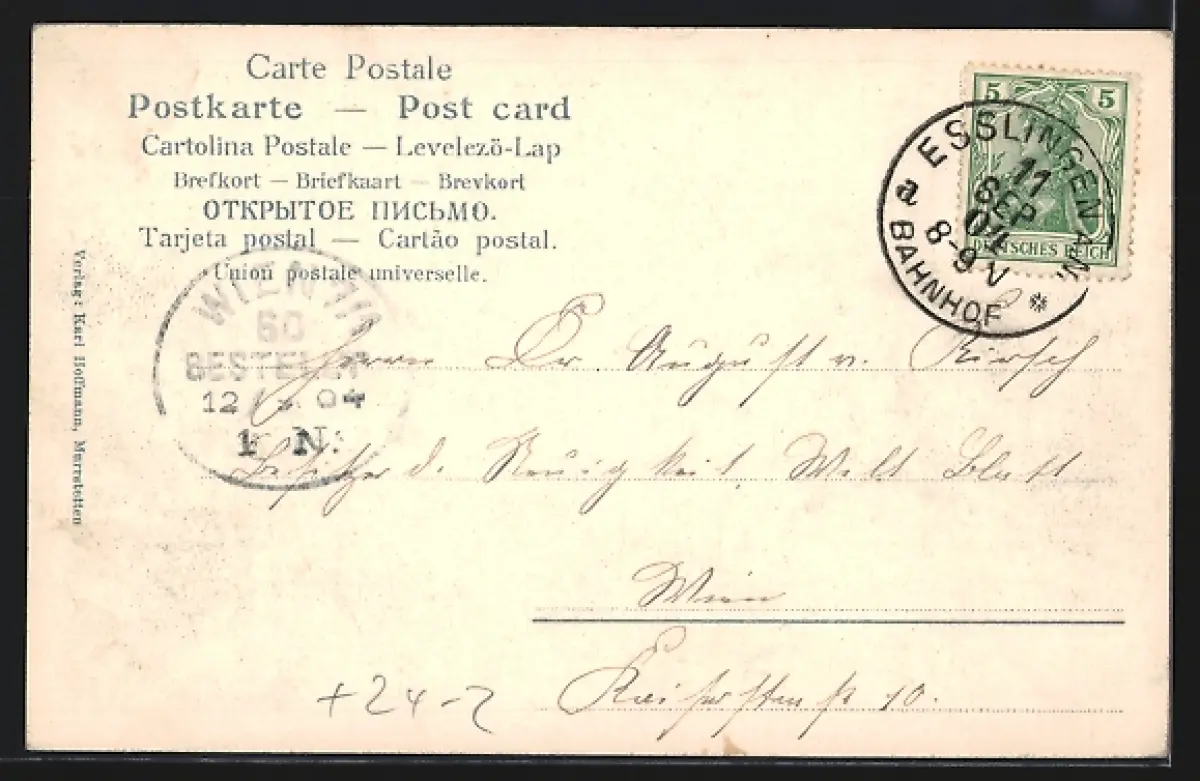 Carte Postale
Postkarte — Post card
Cartolina Postale — Levelező-Lap
Brefkort — Briefkaart — Brevkort
ОТКРЫТОЕ ПИСЬМО.
Tarjeta postal — Cartão postal.
Union postale universelle.
5 5
DEUTSCHES REICH
ESSLINGEN A/N.
11
SEP
04
8-9 V
a
BAHNHOF
*
WIEN
60
BESTELLT
12 04
1 N:
Verlag: Karl Hoffmann,
Herrn Dr August v. Kirsch
Besitzer d. Neuigkeit. Welt Blatt
Wien
10.
+24-2